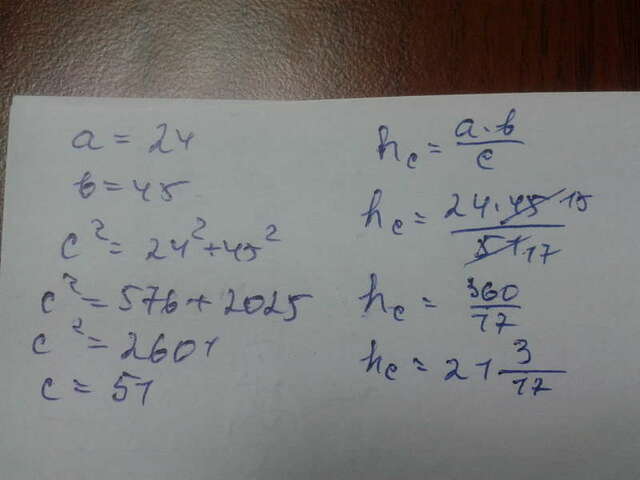 a = 24
b = 45
c² = 24² + 45²
c² = 576 + 2025
c² = 2601
c = 51
h_c = a·b/c
h_c = 24·45 15/51 17
h_c = 360/17
h_c = 21 3/17